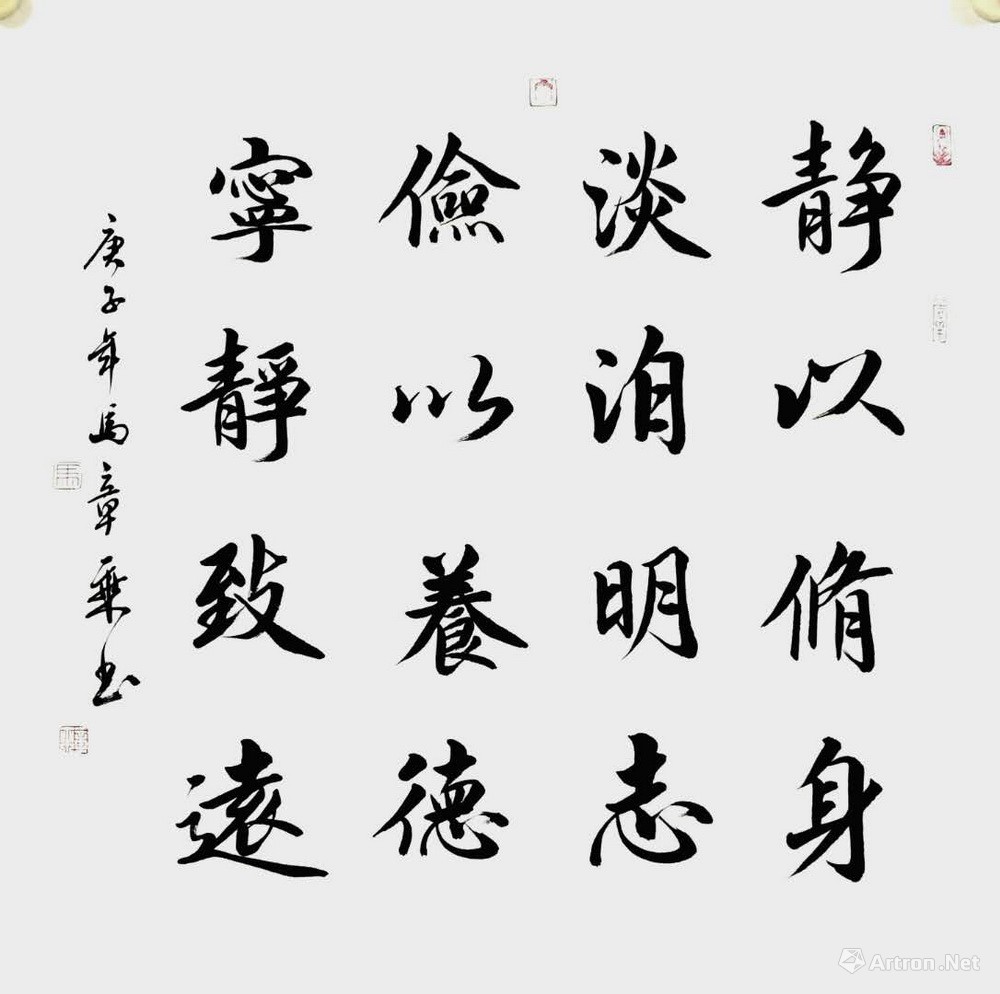 静以脩身
淡泊明志
儉以養德
寧靜致遠
庚子年馬章乘书
Artron.Net